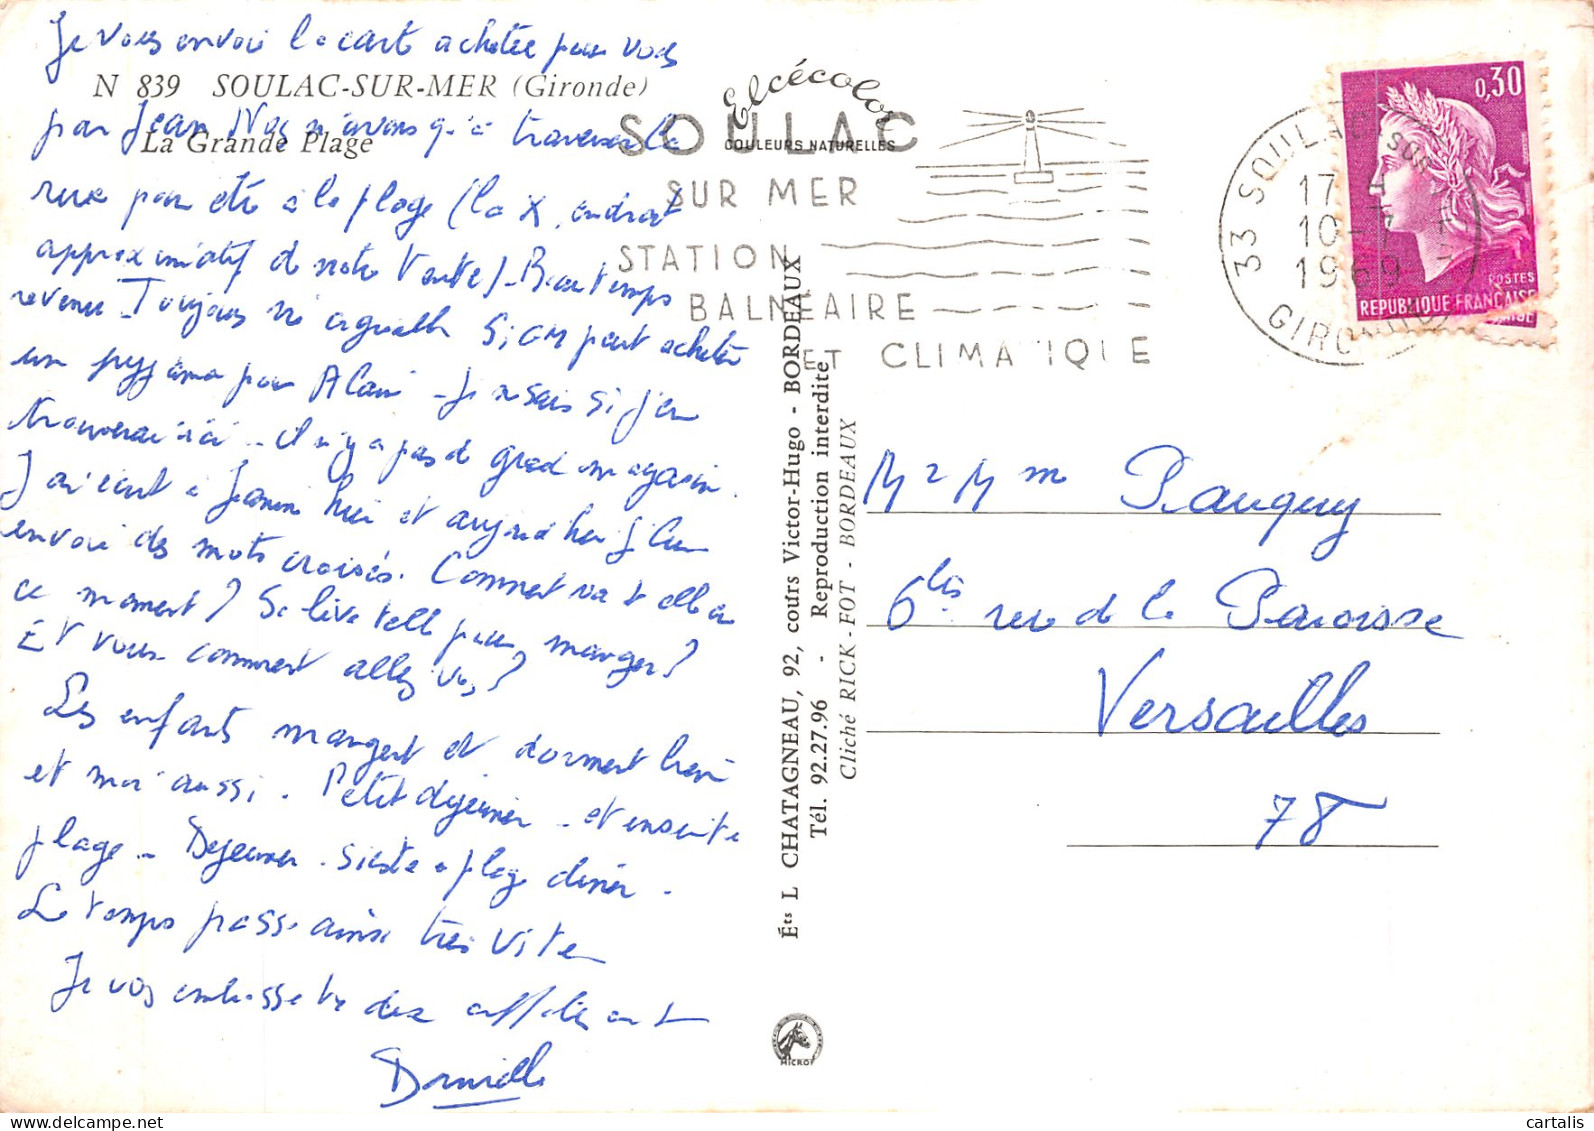 Je vous envoi la carte achetée pour vous
N 839 SOULAC-SUR-MER (Gironde)
par Jean. Nous n'avons qu'à traverser la
La Grande Plage
rue pour être à la plage (la X, endroit
approximatif de notre tente). Beau temps
revenu. Toujours Si on peut acheter
un pyjama pour Alain - Je ne sais si j'en
trouverai ici - il n'y a pas de grand magasin.
J'ai écrit à Janin hier et aujourd'hui je lui
envoi des mots croisés. Comment va t elle en
ce moment ? Se lève telle pour manger ?
Et vous comment allez vous ?
Les enfants mangent et dorment bien
et moi aussi. Petit déjeuner - et ensuite
plage - Déjeuner - sieste plage dîner -
Le temps passe ainsi très vite
Je vous embrasse très affectueusement
Elcécolor
COULEURS NATURELLES
SOULAC
SUR MER
STATION
BALNEAIRE
ET CLIMATIQUE
33 SOULAC-SUR-MER
17 H
10-7
1969
GIRONDE
0,30
POSTES
REPUBLIQUE FRANÇAISE
Éts L CHATAGNEAU, 92, cours Victor-Hugo - BORDEAUX
Tél. 92.27.96 - Reproduction interdite
Cliché RICK-FOT - BORDEAUX
Mr Mme
6bis rue de la Paroisse
Versailles
78
MICROF
cartalis